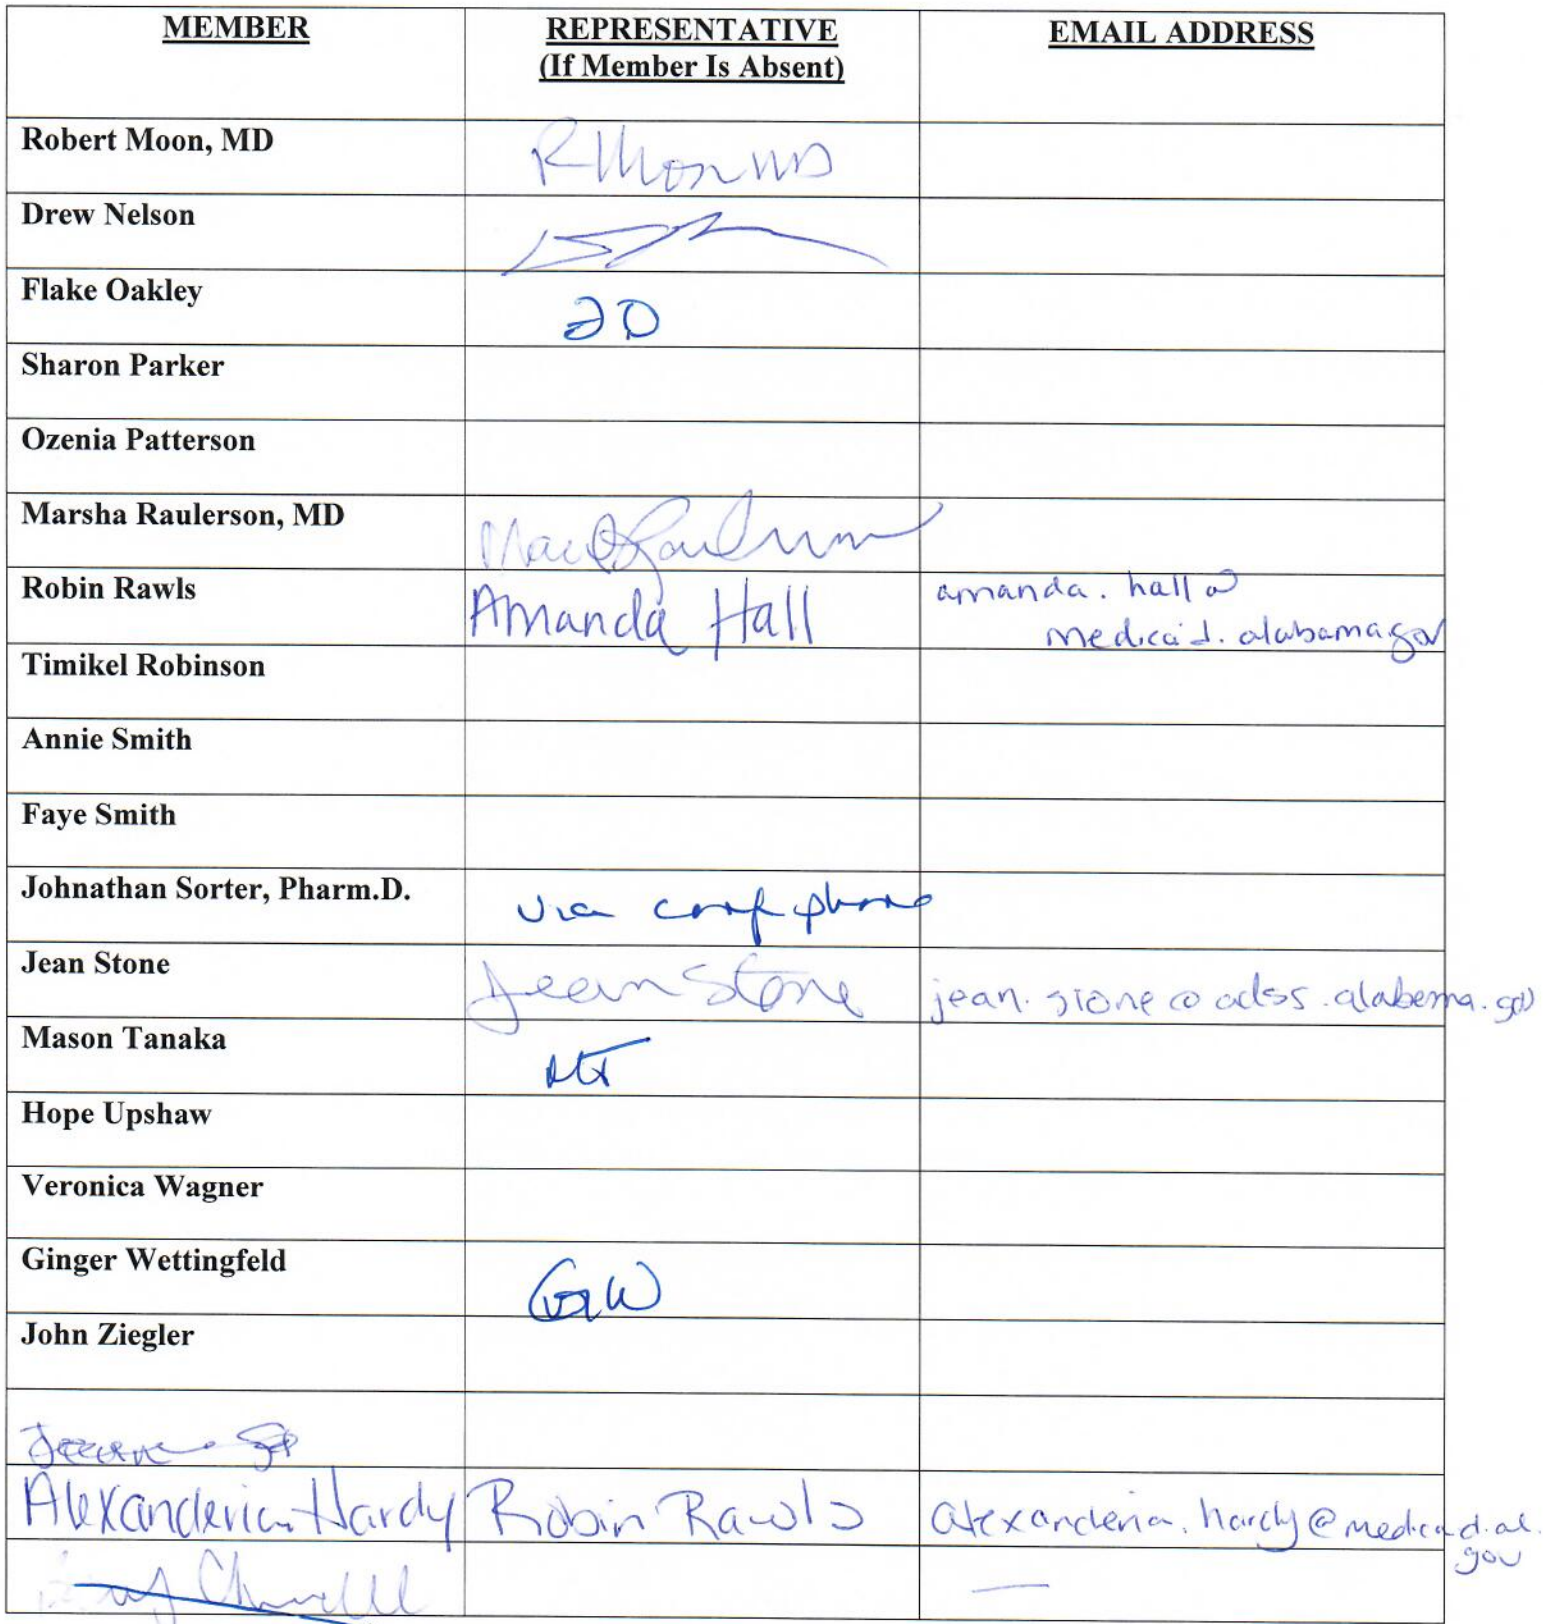 MEMBER REPRESENTATIVE EMAIL ADDRESS
(If Member Is Absent)
Robert Moon, MD R Moon MD
Drew Nelson
Flake Oakley
Sharon Parker
Ozenia Patterson
Marsha Raulerson, MD
Robin Rawls Amanda Hall amanda.hall@
medicaid.alabama.gov
Timikel Robinson
Annie Smith
Faye Smith
Johnathan Sorter, Pharm.D. via conf phone
Jean Stone Jean Stone jean.stone@adss.alabama.gov
Mason Tanaka MT
Hope Upshaw
Veronica Wagner
Ginger Wettingfeld GW
John Ziegler
Alexanderia Hardy Robin Rawls alexanderia.hardy@medicaid.al.
gov